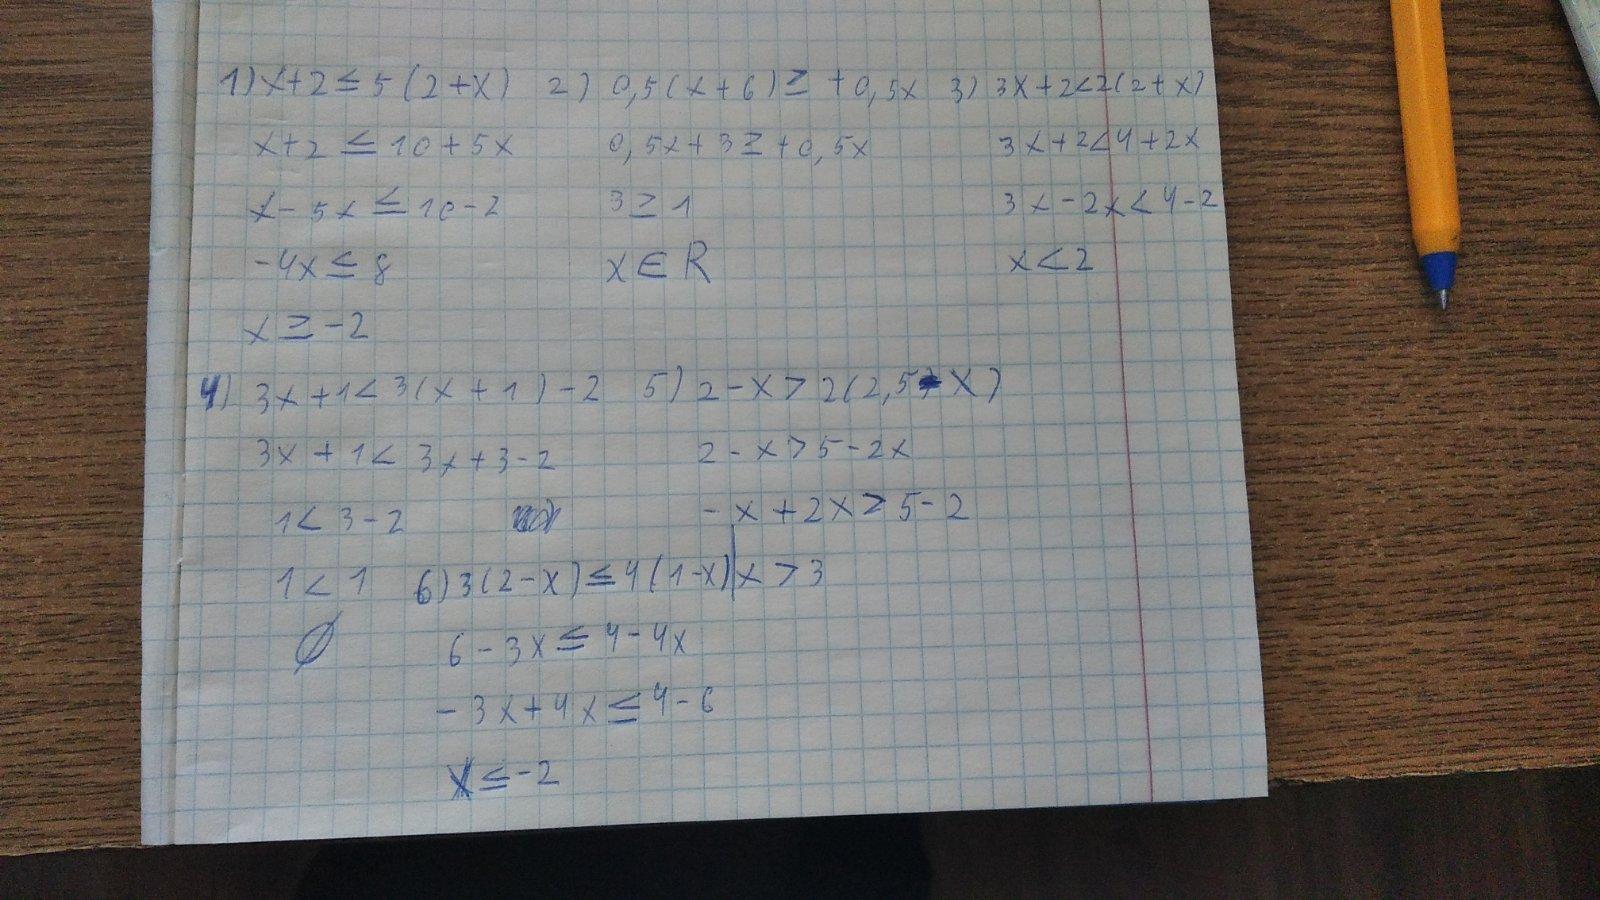 1) x+2 ≤ 5(2+x)
x+2 ≤ 10+5x
x-5x ≤ 10-2
-4x ≤ 8
x ≥ -2
2) 0,5(x+6) ≥ +0,5x
0,5x+3 ≥ +0,5x
3 ≥ 1
x ∈ R
3) 3x+2<2(2+x)
3x+2<4+2x
3x-2x<4-2
x<2
4) 3x+1<3(x+1)-2
3x+1<3x+3-2
1<3-2
1<1
∅
5) 2-x>2(2,5-x)
2-x>5-2x
-x+2x>5-2
x>3
6) 3(2-x) ≤ 4(1-x)
6-3x ≤ 4-4x
-3x+4x ≤ 4-6
x ≤ -2